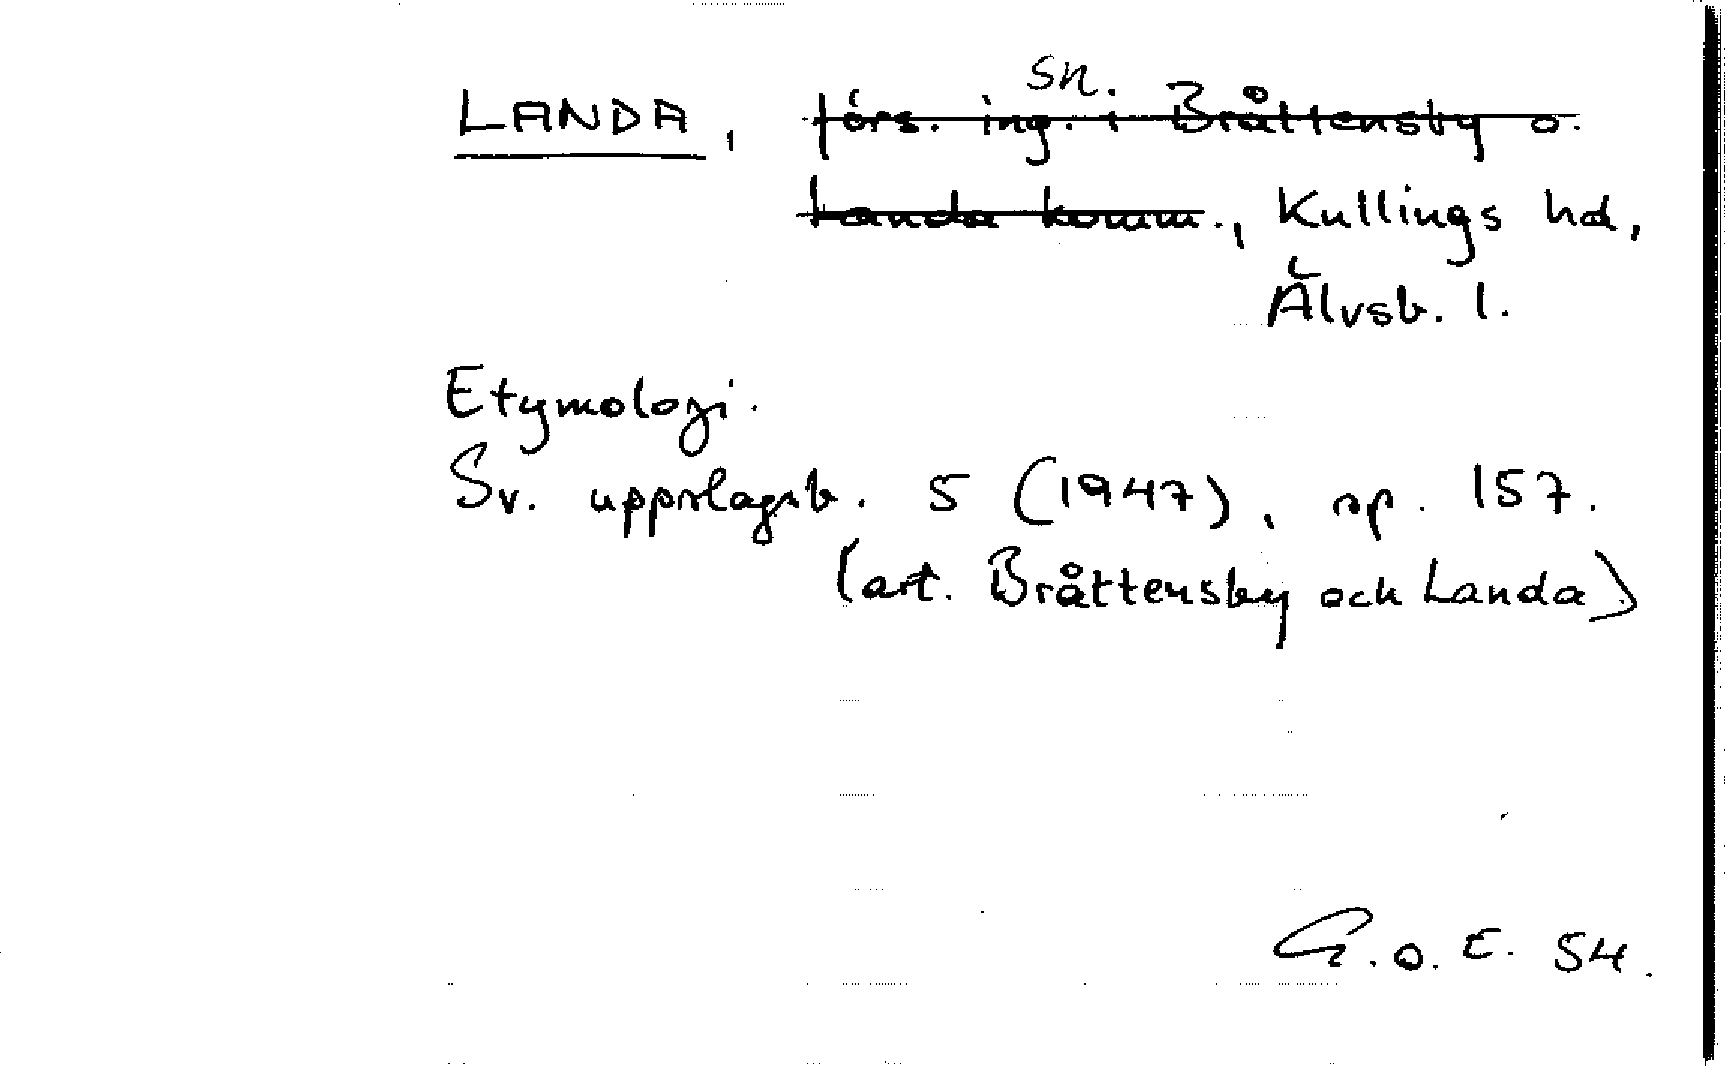 sn.
LANDA, förs. ing. i Bråttensby o.
Landa komm., Kullings hd,
Älvsb. l.
Etymologi.
Sv. uppslagsb. 5 (1947), sp. 157.
(art. Bråttensby och Landa)
G.O.E. 54.